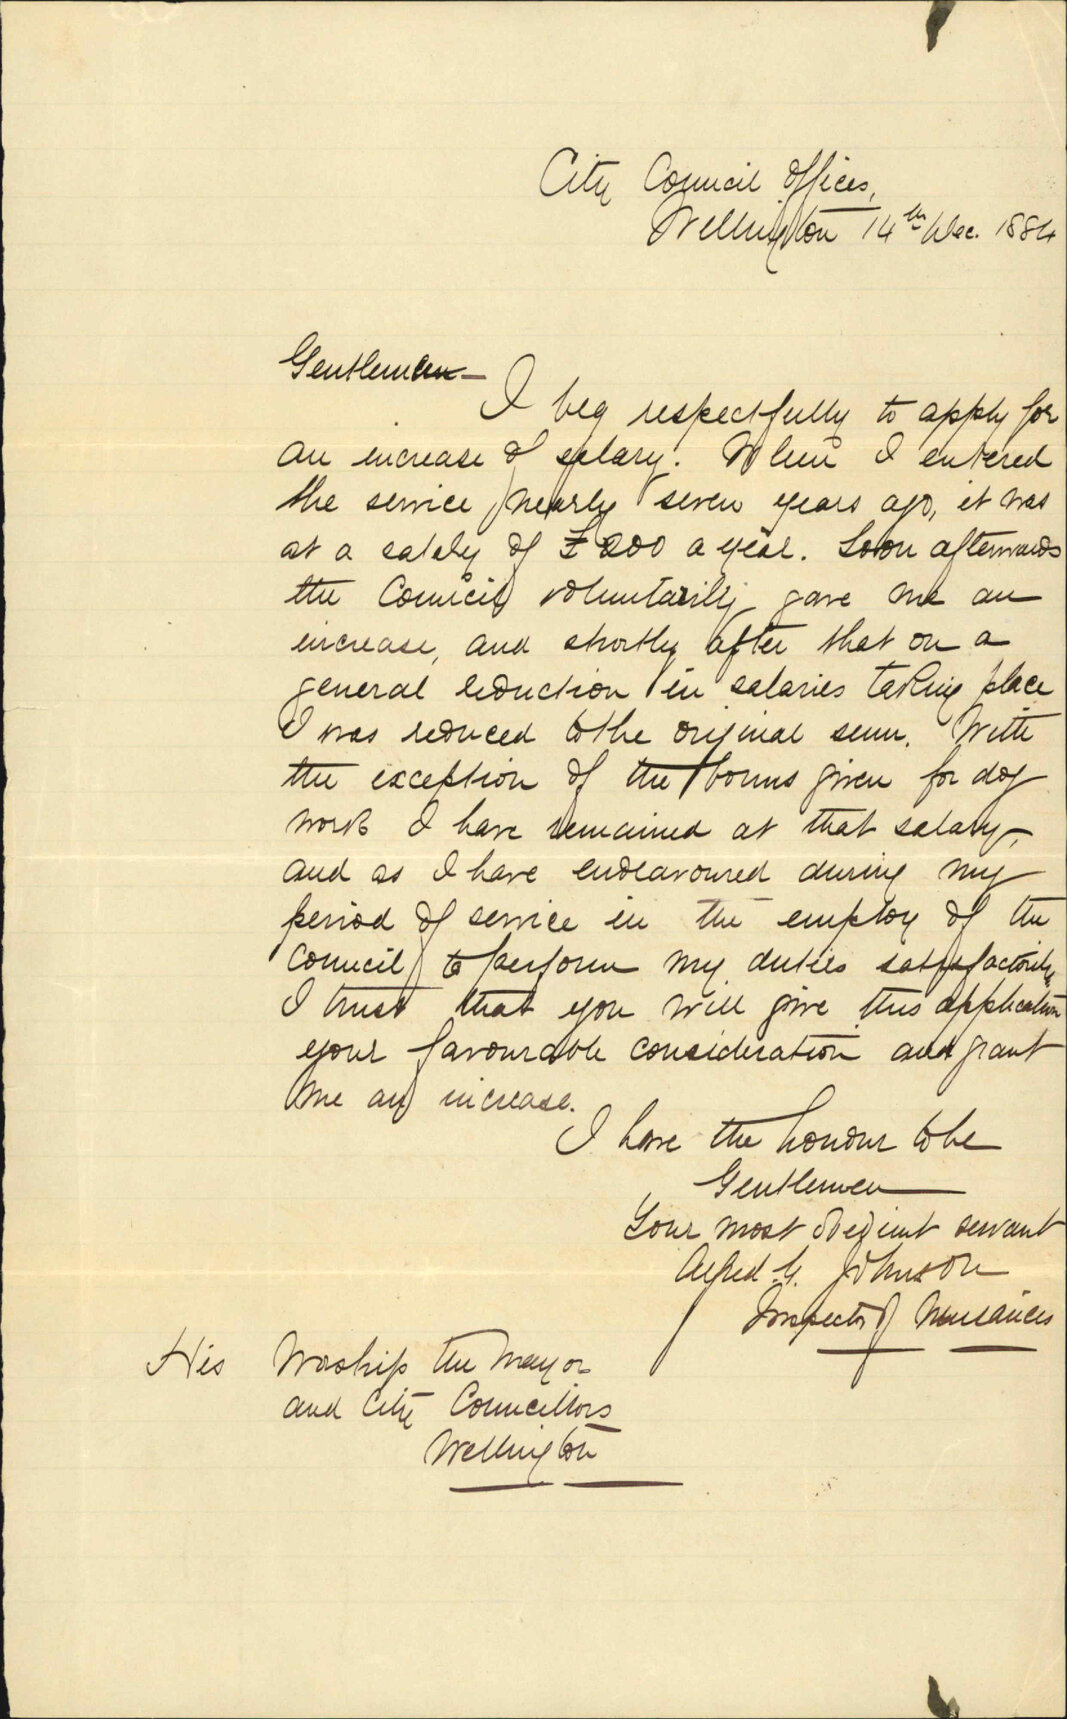 City Council Offices,
Wellington 14th Dec. 1884
Gentlemen—
I beg respectfully to apply for
an increase of salary. When I entered
the service, nearly seven years ago, it was
at a salary of £200 a year. Soon afterwards
the Council voluntarily gave me an
increase, and shortly after that on a
general reduction in salaries taking place
I was reduced to the original sum. With
the exception of the bonus given for dog
work I have remained at that salary,
and as I have endeavoured during my
period of service in the employ of the
Council to perform my duties satisfactorily
I trust that you will give this application
your favourable consideration and grant
me an increase.
I have the honour to be
Gentlemen
Your most obedient servant
Alfred G. Johnson
Inspector of Nuisances
His Worship the Mayor
and City Councillors
Wellington